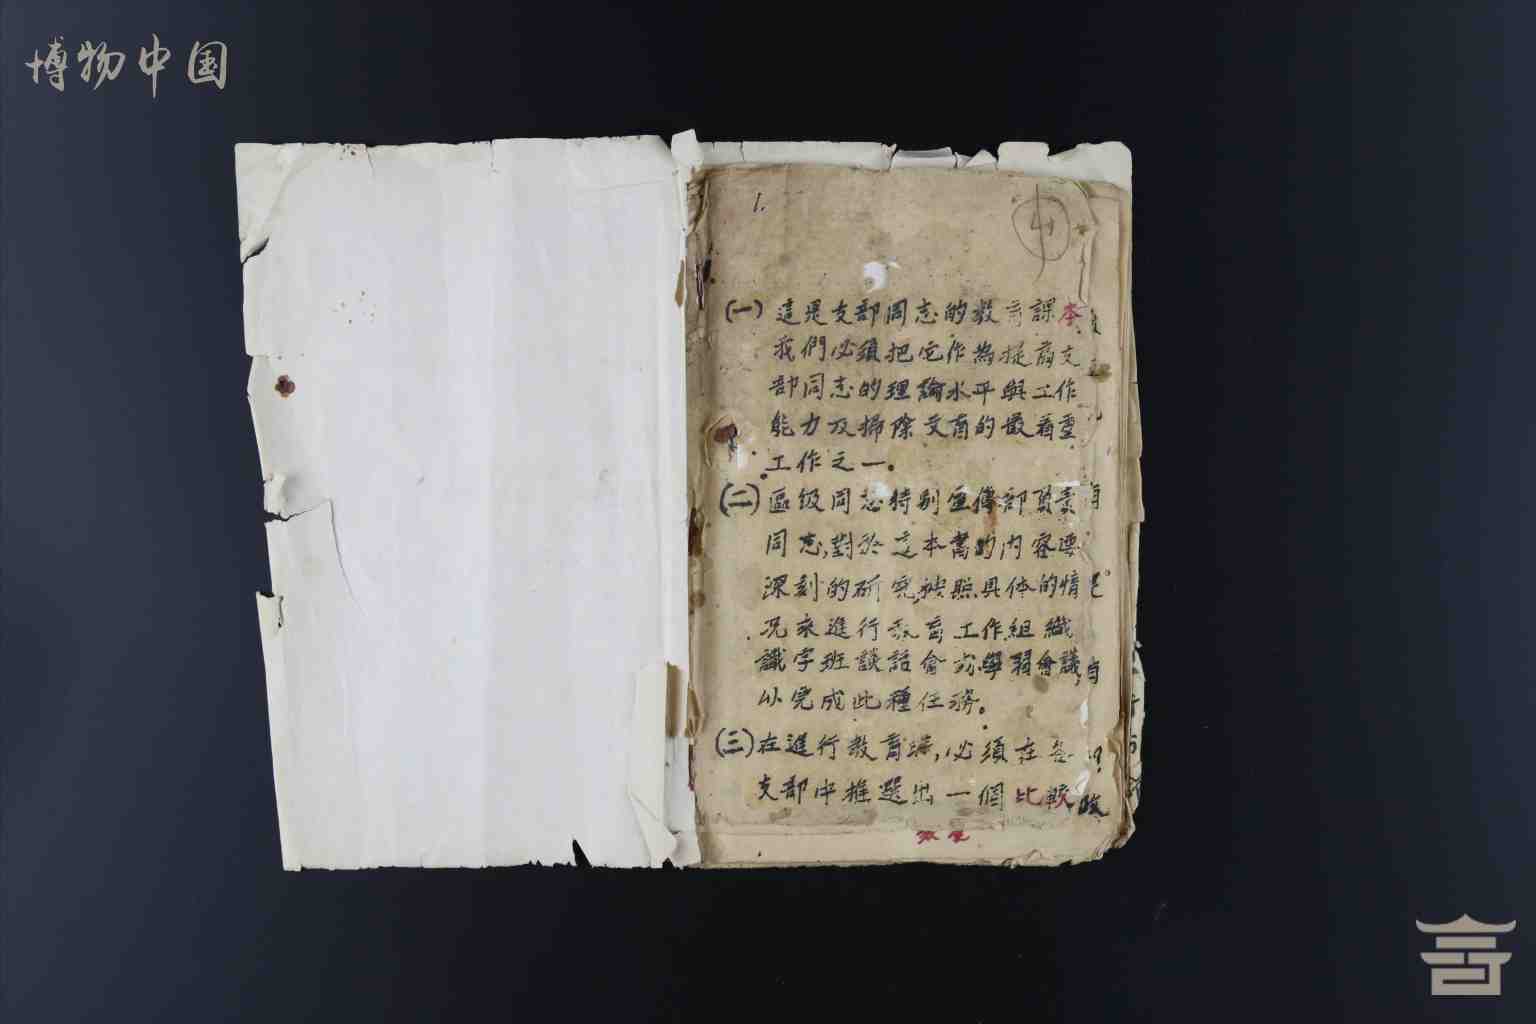 博物中国
1.
(一)這是支部同志的教育課本
我們必須把它作為提高支
部同志的理論水平與工作
能力及掃除文盲的最着重
工作之一。
(二)區级同志特别宣傳部負責
同志,對於這本書的内容要
深刻的研究,按照具体的情
况來進行教育工作,組織
識字班談話會或學習會議,
以完成此種任務。
(三)在進行教育時,必須在各
支部中推選出一個比較